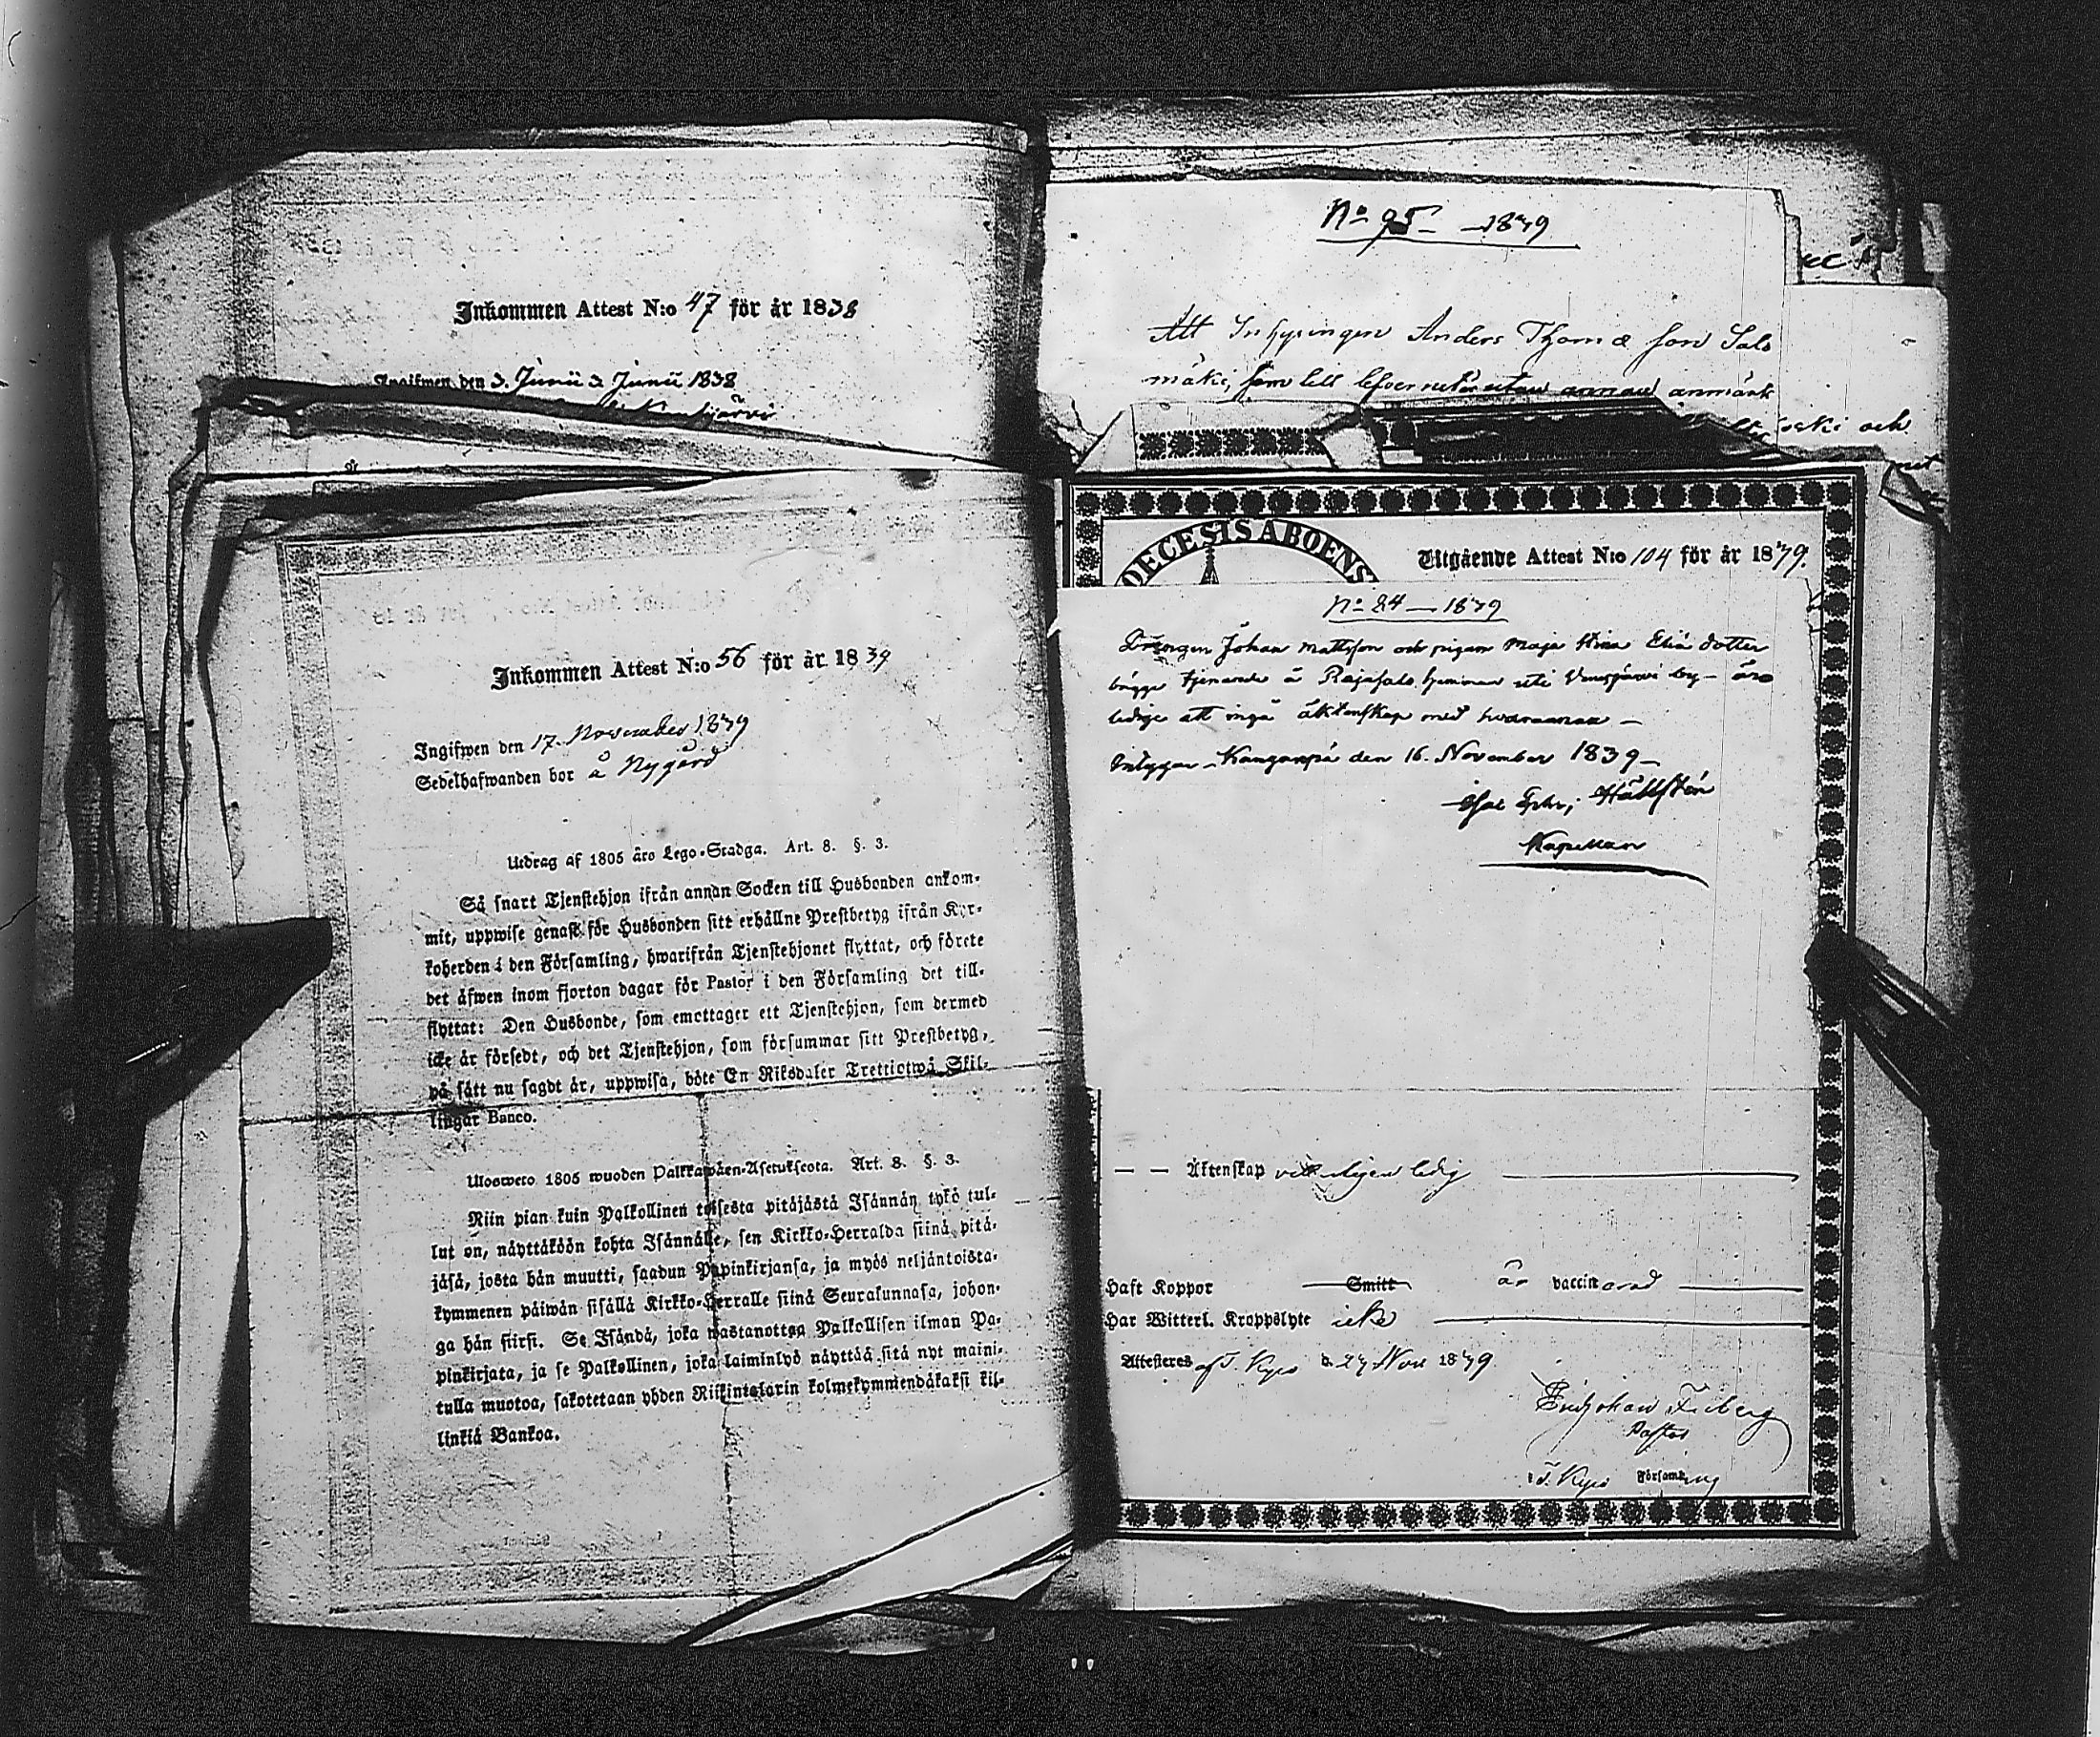 Inkommen Attest N:o 47 för år 1838
Ingifwen den 3. Junii 3 Junii 1838
Kankjärvi
Inkommen Attest N:o 56 för år 1839
Ingifwen den 17. November 1839
Sedelhafwanden bor å Nygård
Utdrag af 1805 års Lego-Stadga. Art. 8. §. 3.
Så snart Tjenstehjon ifrån annan Socken till Husbonden ankom-
mit, uppwise genast för Husbonden sitt erhållne Prestbetyg ifrån Kyr-
koherden i den Församling, hwarifrån Tjenstehjonet flyttat, och förete
det äfwen inom fjorton dagar för Pastor i den Församling det till-
flyttat: Den Husbonde, som emottager ett Tjenstehjon, som dermed
icke är försedt, och det Tjenstehjon, som försummar sitt Prestbetyg,
på sätt nu sagdt är, uppwisa, böte En Riksdaler Trettiotwå Skil-
lingar Banco.
Ulosweto 1805 wuoden Palkkawäen-Asetuksesta. Art. 8. §. 3.
Niin pian kuin Palkollinen toisesta pitäjästä Isännän tykö tul-
lut on, näyttäköön kohta Isännälle, sen Kirkko-Herralda siinä pitä-
jäsä, josta hän muutti, saadun Papinkirjansa, ja myös neljäntoista-
kymmenen päiwän sisällä Kirkko-Herralle siinä Seurakunnasa, johon-
ga hän siirsi. Se Isändä, joka wastanottaa Palkollisen ilman Pa-
pinkirjata, ja se Palkollinen, joka laiminlyö näyttää sitä nyt maini-
tulla muotoa, sakotetaan yhden Riikintalarin kolmekymmendäkaksi kil-
linkiä Bankoa.
No 95 - 1839
Att Inhysingen Anders Thomæ son Salo
mäki, som till lefvernet är utan annan anmärk
och
DECESIS ABOENS
Utgående Attest N:o 104 för år 1839.
No 84 - 1839
Drengen Johan Mattsson och pigan Maja Stina Eliæ dotter
bägge tjenande å Rajasalo hemman uti Venesjärvi by - äro
ledige att ingå äktenskap med hvarannan -
Intygar - Kanganpä den 16. November 1839 -
Hällstén
Kapellan
- - Äktenskap vitterligen ledig
Haft Koppor Smitt är vaccinerad
Har Witterl. Kroppslyte icke
Attesteras af T. Kyro d. 27 Nov 1839
Johan Friberg
Pastor
i T. Kyro Församling